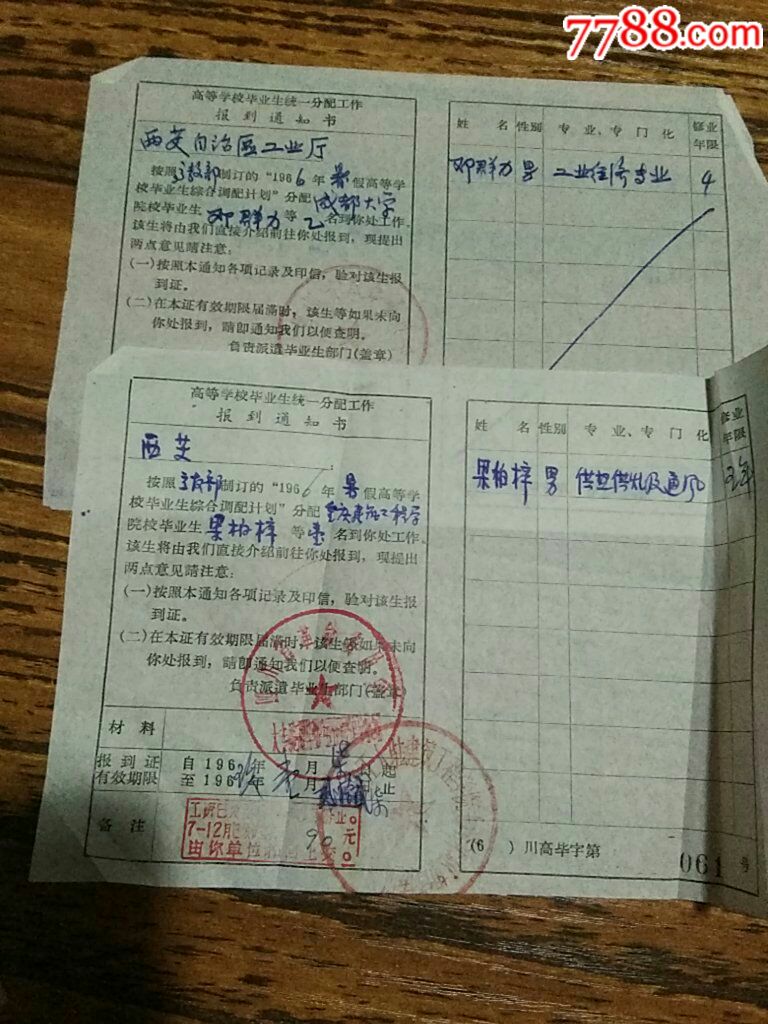 7788.com
高等学校毕业生統一分配工作
报到通知书
西芷自治區工业厅
按照 制訂的“1966年暑假高等学
校毕业生綜合調配計划”分配成都大学
院校毕业生邓群力等乙名到你处工作。
該生将由我們直接介紹前往你处报到，現提出
两点意见請注意：
(一)按照本通知各項記录及印信，驗对該生报
到証。
(二)在本証有效期限届满时，該生等如果未向
你处报到，請卽通知我們以便查明。
負責派遣毕业生部門(盖章)
姓 名 性别 专业、专門化 修业年限
邓群力 男 工业经济专业 4
高等学校毕业生統一分配工作
报到通知书
西芷
按照 制訂的“1966年暑假高等学
校毕业生綜合調配計划”分配重庆建筑工程学
院校毕业生果柏梓等 名到你处工作。
該生将由我們直接介紹前往你处报到，現提出
两点意见請注意：
(一)按照本通知各項記录及印信，驗对該生报
到証。
(二)在本証有效期限届满时，該生等如果未向
你处报到，請卽通知我們以便查明。
負責派遣毕业生部門(盖章)
材料
报到証有效期限
自196 年 月 起
至196 年 月 止
备注
7-12月
90元
由你单位
姓 名 性别 专业、专門化 修业年限
果柏梓 男 供热供燃及通风 五年
(6 ) 川高毕字第 061 号